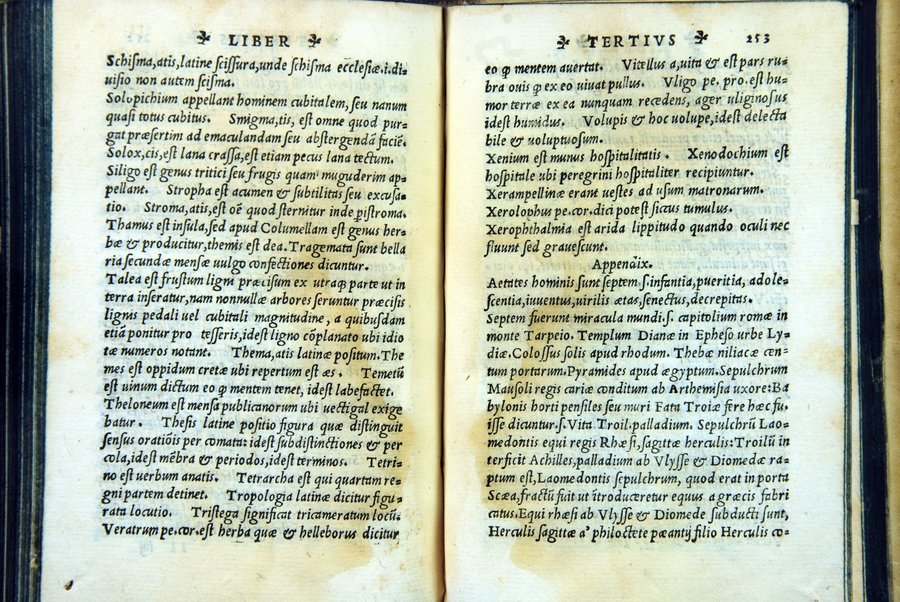 LIBER
Schisma,atis,latine scissura,unde schisma ecclesiæ.i.di-
uisio non autem scisma.
Solopichium appellant hominem cubitalem, seu nanum
quasi totus cubitus. Smigma,tis, est omne quod pur-
gat præsertim ad emaculandam seu abstergendã faciē.
Solox,cis,est lana crassa,est etiam pecus lana tectum.
Siligo est genus tritici seu frugis quam muguderim ap-
pellant. Stropha est acumen & subtilitas seu excusa-
tio. Stroma,atis,est oē quod sternitur inde ꝑistroma.
Thamus est insula,sed apud Columellam est genus her-
bæ & producitur,themis est dea. Tragemata sunt bella
ria secundæ mensæ uulgo confectiones dicuntur.
Talea est frustum ligni præcisum ex utraq; parte ut in
terra inseratur,nam nonnullæ arbores seruntur præcisis
lignis pedali uel cubitali magnitudine, a quibusdam
etiã ponitur pro tesseris,idest ligno cõplanato ubi idio
tæ numeros notant. Thema,atis latine positum.The
mes est oppidum cretæ ubi repertum est æs. Temetū
est uinum dictum eo ꝙ mentem tenet, idest labefactet.
Theloneum est mensa publicanorum ubi uectigal exige
batur. Thesis latine positio figura quæ distinguit
sensus oratiõis per comata: idest subdistinctiones & per
cola,idest mēbra & periodos,idest terminos. Tetri-
no est uerbum anatis. Tetrarcha est qui quartam re-
gni partem detinet. Tropologia latine dicitur figu-
rata locutio. Tristega significat tricameratum locū.
Veratrum pe.cor.est herba quæ & helleborus dicitur
TERTIVS 253
eo ꝙ mentem auertat. Vitellus a,uita & est pars ru-
bra ouis ꝙ ex eo uiuat pullus. Vligo pe. pro.est hu-
mor terræ ex ea nunquam recedens, ager uliginosus
idest humidus. Volupis & hoc uolupe,idest delecta
bile & uoluptuosum.
Xenium est munus hospitalitatis. Xenodochium est
hospitale ubi peregrini hospitaliter recipiuntur.
Xerampellinæ erant uestes ad usum matronarum.
Xerolophus pe.cor.dici potest siccus tumulus.
Xerophthalmia est arida lippitudo quando oculi nec
fluunt sed grauescunt.
Appendix.
Aetates hominis sunt septem.s.infantia,pueritia, adole-
scentia,iuuentus,uirilis ætas,senectus,decrepitas.
Septem fuerunt miracula mundi.s. capitolium romæ in
monte Tarpeio. Templum Dianæ in Epheso urbe Ly-
diæ.Colossus solis apud rhodum. Thebæ niliacæ cen-
tum portarum.Pyramides apud ægyptum.Sepulchrum
Mausoli regis cariæ conditum ab Arthemisia uxore:Ba
bylonis horti pensiles seu muri Fata Troiæ fere hæc fu-
isse dicuntur.s.Vita Troil.palladium. Sepulchrū Lao-
medontis equi regis Rhæsi,sagittæ herculis:Troilū in
terficit Achilles,palladium ab Vlysse & Diomedæ ra-
ptum est,Laomedontis sepulchrum, quod erat in porta
Scæa,fractū fuit ut ītroduceretur equus a græcis fabri
catus.Equi rhæsi ab Vlysse & Diomede subducti sunt,
Herculis sagittæ a' philoctete pæantij filio Herculis co-